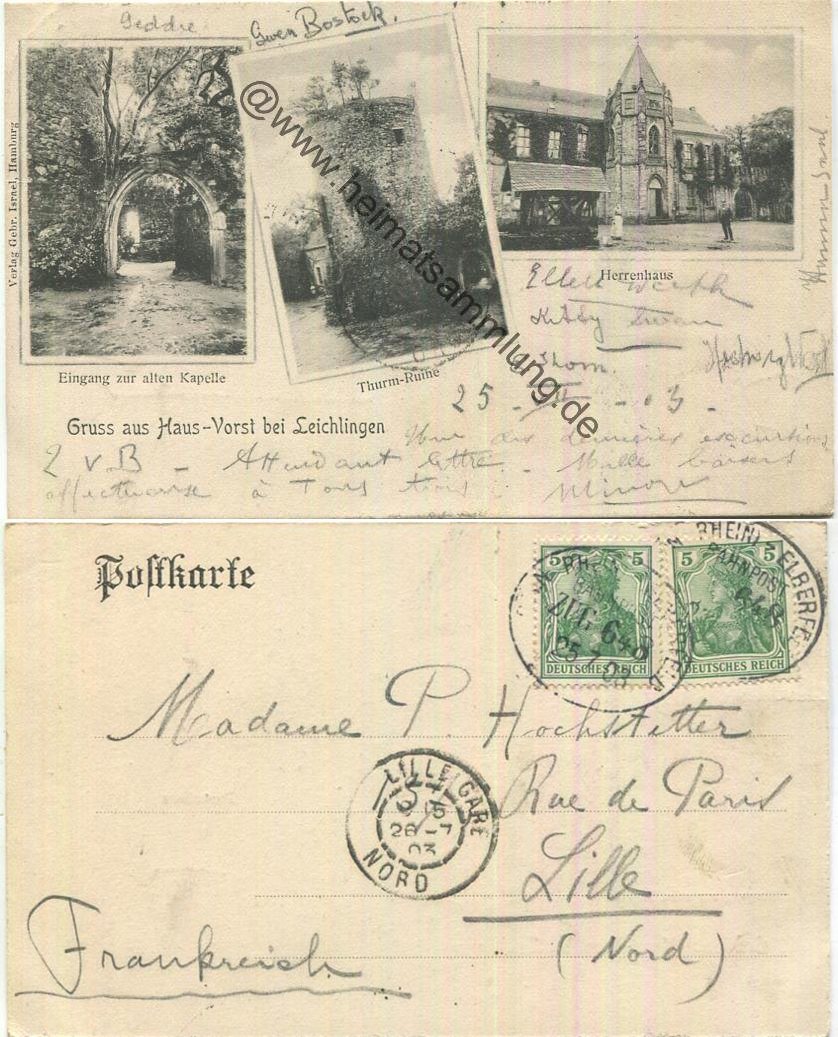 Geddre
Gwen Bostock.
Verlag Gebr. Israel, Hamburg
@www.heimatsammlung.de
Eingang zur alten Kapelle
Thurm-Ruine
Herrenhaus
Kitty Swan
Thom.
Gruss aus Haus-Vorst bei Leichlingen
25 - VII - 03 -
Une des dernières excursions
2 v B - Attendant lettre - Mille baisers
affectueuse à Tous trois
Postkarte
5 5
DEUTSCHES REICH
5 5
DEUTSCHES REICH
BAHNPOST
ZUG 648
25 7 03
(RHEIN) ELBERFELD
BAHNPOST
648
Madame P. Hochstetter
Rue de Paris
Lille
(Nord)
Frankreich
LILLE GARE
26-7
03
NORD